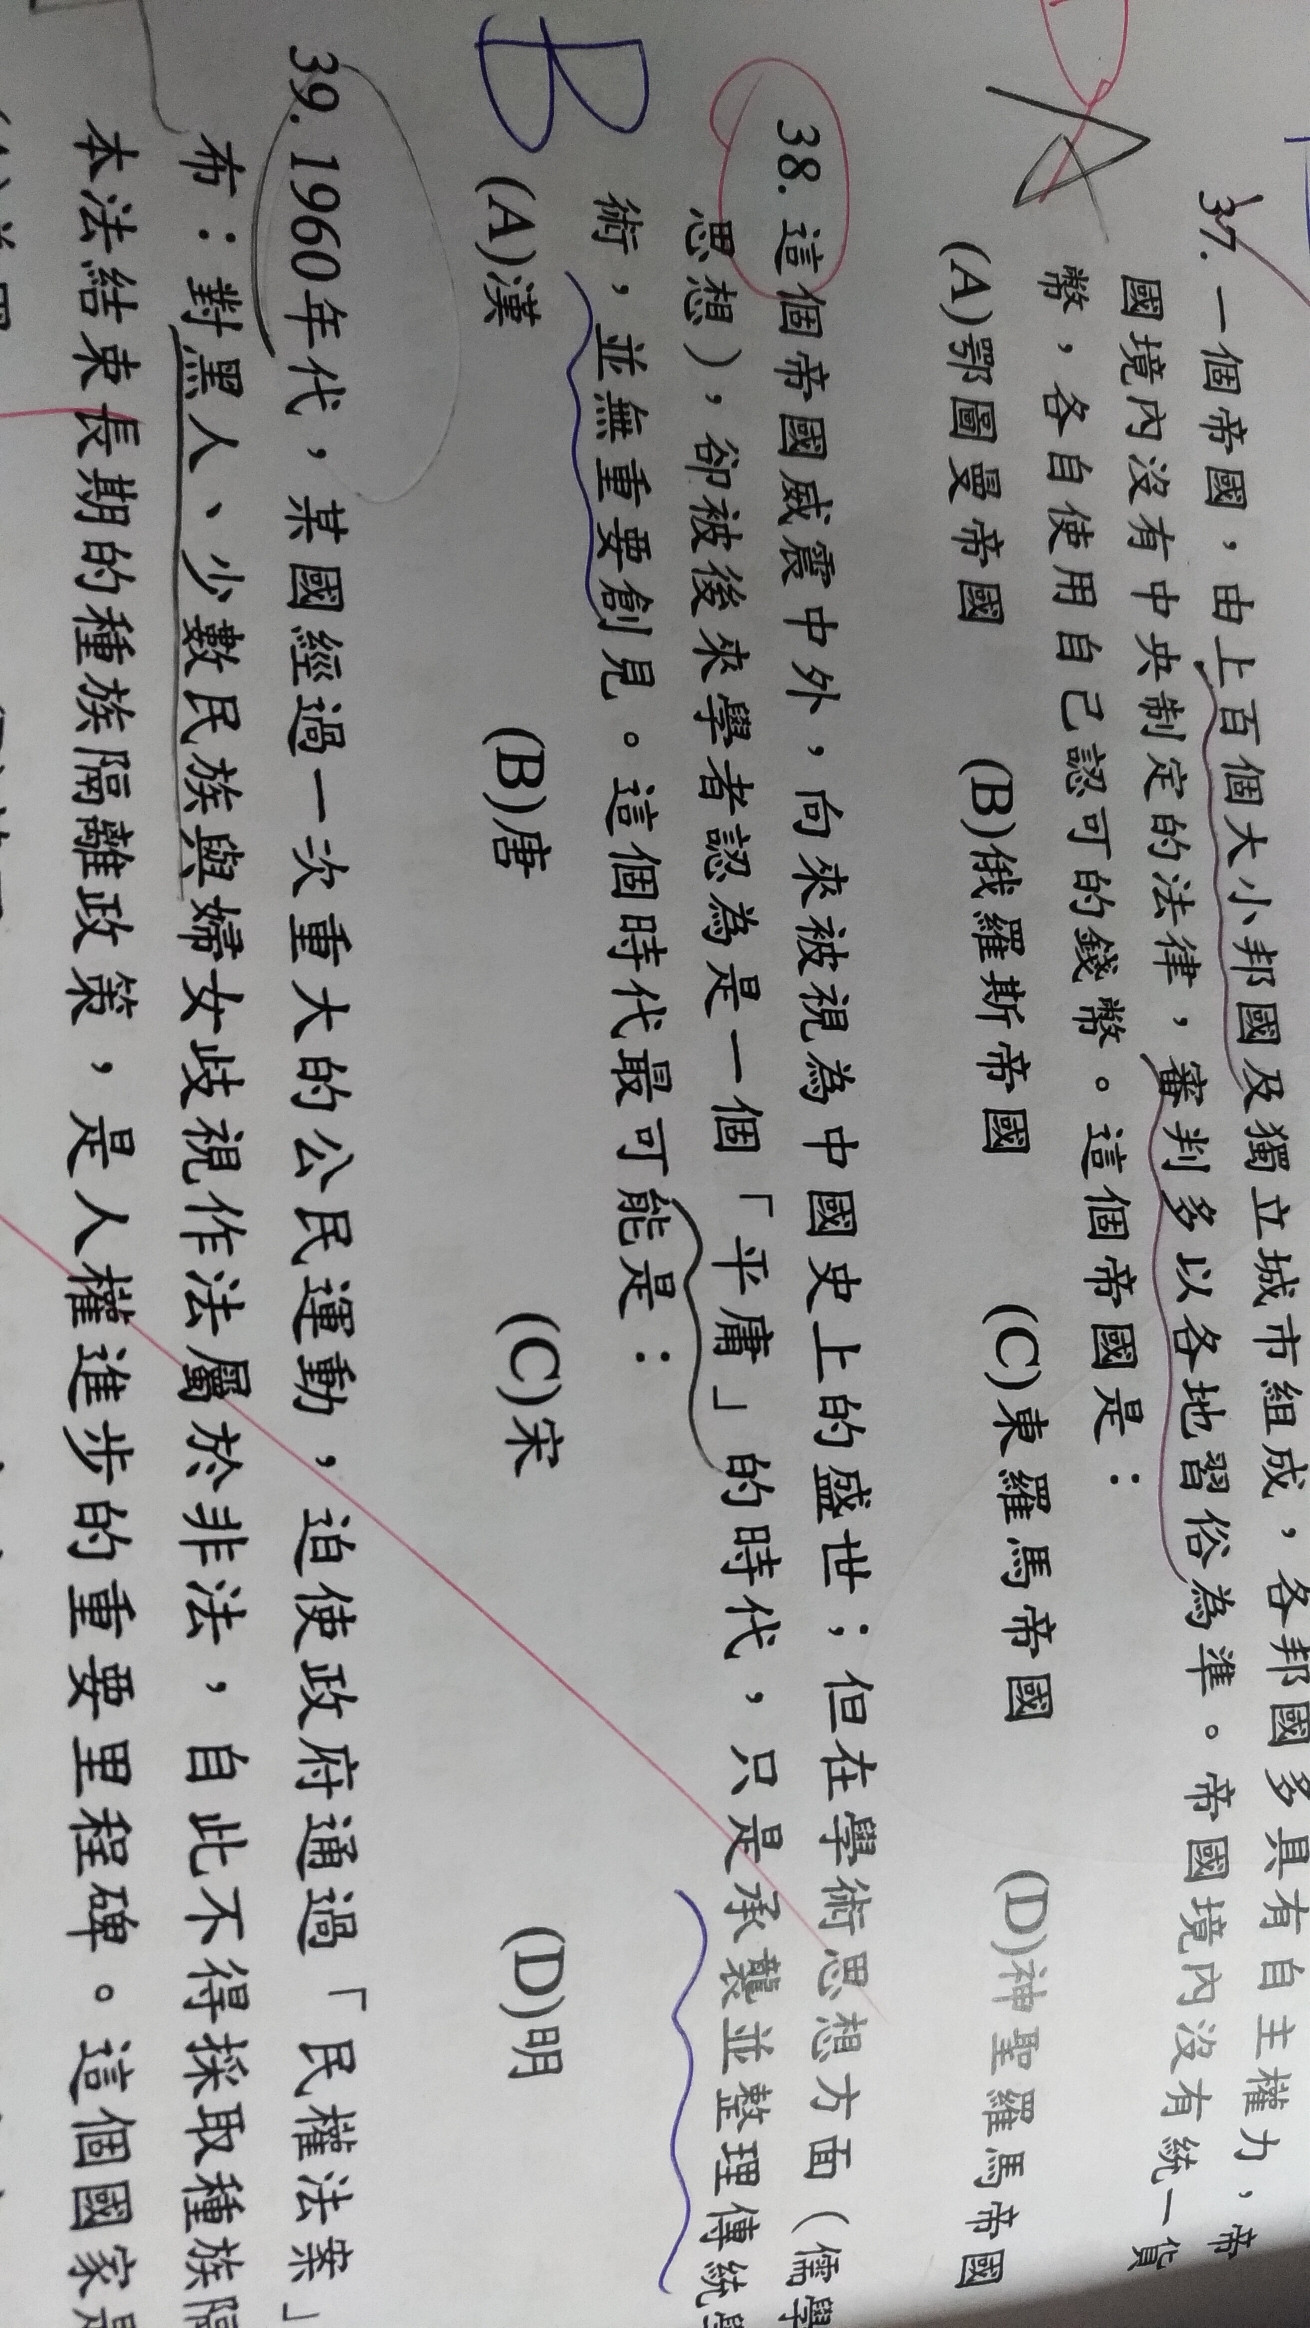 37. 一個帝國，由上百個大小邦國及獨立城市組成，各邦國多具有自主權力，帝
國境內沒有中央制定的法律，審判多以各地習俗為準。帝國境內沒有統一貨
幣，各自使用自己認可的錢幣。這個帝國是：
(A)鄂圖曼帝國 (B)俄羅斯帝國 (C)東羅馬帝國 (D)神聖羅馬帝國
38. 這個帝國威震中外，向來被視為中國史上的盛世；但在學術思想方面（儒學
思想），卻被後來學者認為是一個「平庸」的時代，只是承襲並整理傳統學
術，並無重要創見。這個時代最可能是：
B
(A)漢 (B)唐 (C)宋 (D)明
39. 1960年代，某國經過一次重大的公民運動，迫使政府通過「民權法案」
布：對黑人、少數民族與婦女歧視作法屬於非法，自此不得採取種族隔
本法結束長期的種族隔離政策，是人權進步的重要里程碑。這個國家是